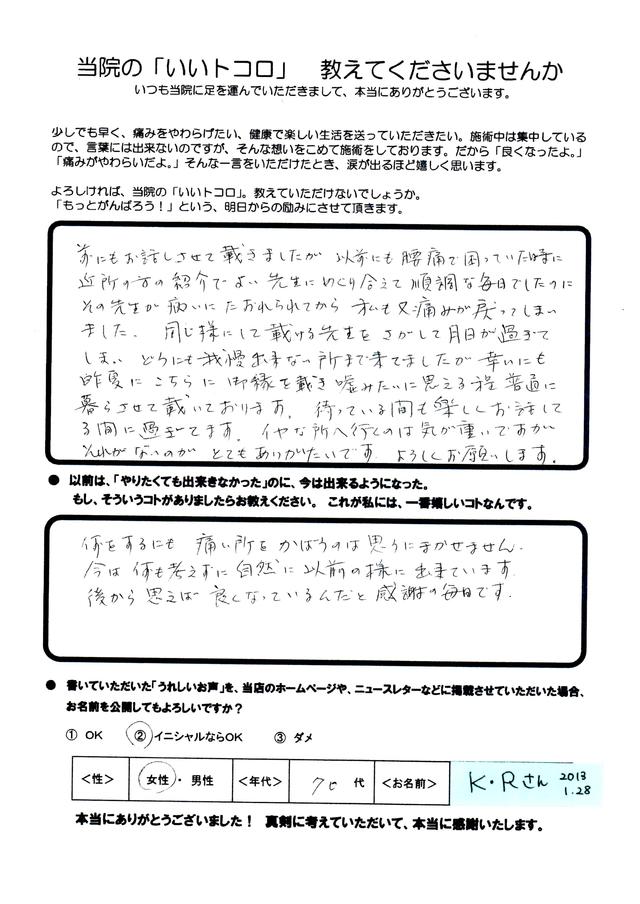 当院の「いいトコロ」　教えてくださいませんか
いつも当院に足を運んでいただきまして、本当にありがとうございます。
少しでも早く、痛みをやわらげたい、健康で楽しい生活を送っていただきたい。施術中は集中している
ので、言葉には出来ないのですが、そんな想いをこめて施術をしております。だから「良くなったよ。」
「痛みがやわらいだよ。」そんな一言をいただけたとき、涙が出るほど嬉しく思います。
よろしければ、当院の「いいトコロ」。教えていただけないでしょうか。
「もっとがんばろう！」という、明日からの励みにさせて頂きます。
前にもお話しさせて戴きましたが 以前にも腰痛で困っていた時に
近所の方の紹介でよい先生にめぐり合えて 順調な毎日でしたのに
その先生が病いにたおれられてから 私も又痛みが戻ってしまい
ました. 同じ様にして戴ける先生をさがして月日が過ぎて
しまい どうにも我慢出来ない所まで来てましたが 幸いにも
昨夏に こちらに御縁を戴き 嘘みたいに思える程 普通に
暮らさせて戴いております. 待っている間も楽しくお話して
る間に過ぎてます. イヤな所へ行くのは気が重いですが
それがないのが とてもありがたいです よろしくお願いします.
● 以前は、「やりたくても出来きなかった」のに、今は出来るようになった。
もし、そういうコトがありましたらお教えください。 これが私には、一番嬉しいコトなんです。
何をするにも 痛い所をかばうのは思うにまかせません.
今は何も考えずに自然に以前の様に出来ています.
後から思えば 良くなっているんだと感謝の毎日です.
● 書いていただいた「うれしいお声」を、当店のホームページや、ニュースレターなどに掲載させていただいた場合、
お名前を公開してもよろしいですか？
① OK　② イニシャルならOK　③ ダメ
＜性＞ 女性・男性 ＜年代＞ 70 代 ＜お名前＞ K・Rさん 2013
1.28
本当にありがとうございました！ 真剣に考えていただいて、本当に感謝いたします。